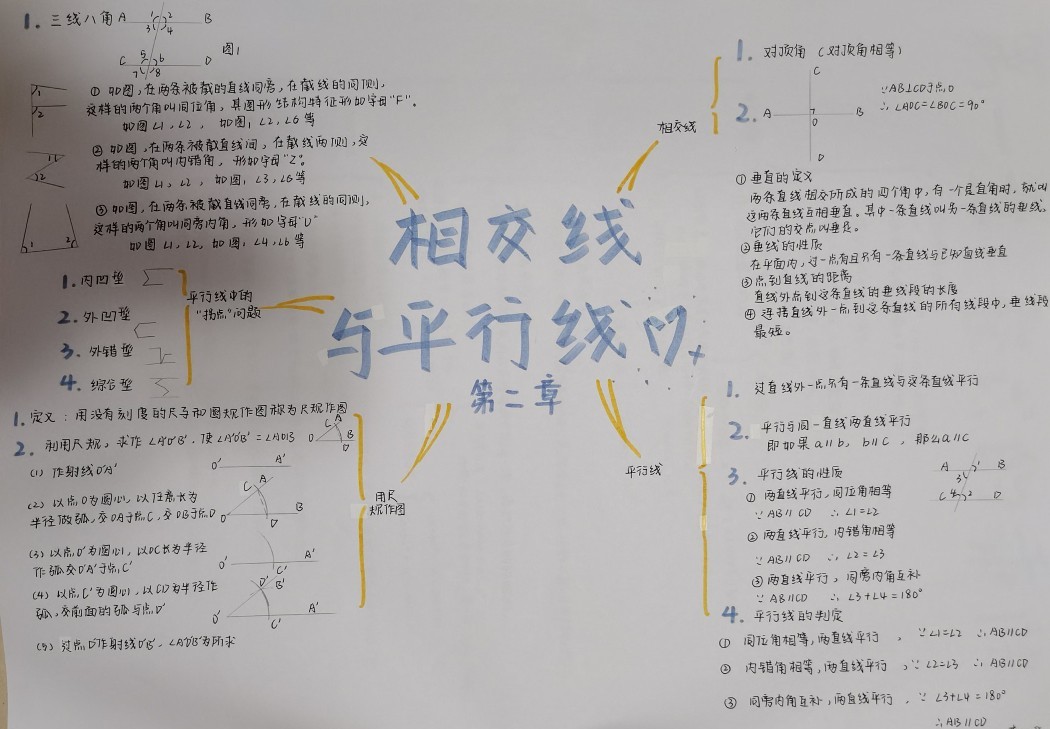 相交线
与平行线
第二章
1. 三线八角
A B
1 2
3 4
C D
5 6
7 8
图1
① 如图,在两条被截的直线同旁,在截线的同侧,
这样的两个角叫同位角,其图形结构特征形如字母"F"。
如图∠1,∠2, 如图1 ∠2,∠6等
② 如图,在两条被截直线间,在截线两侧,这
样的两个角叫内错角,形如字母"Z"。
如图∠1,∠2, 如图1 ∠3,∠6等
③ 如图,在两条被截直线间旁,在截线的同侧,
这样的两个角叫同旁内角,形如字母"U"
如图∠1,∠2, 如图1 ∠4,∠6等
平行线中的
"拐点"问题
1. 内凹型
2. 外凹型
3. 外错型
4. 综合型
用尺
规作图
1. 定义:用没有刻度的尺子和圆规作图称为尺规作图
2. 利用尺规,求作∠A'O'B',使∠A'O'B'=∠AOB
(1) 作射线O'A'
(2) 以点O为圆心,以任意长为
半径做弧,交OA于点C,交OB于点D
(3) 以点O'为圆心,以OC长为半径
作弧交O'A'于点C'
(4) 以点C'为圆心,以CD为半径作
弧,交前面的弧与点D'
(5) 过点D'作射线O'B',∠A'O'B'为所求
相交线
1. 对顶角(对顶角相等)
2.
A B
C
O
D
∵AB⊥CD于点O
∴∠AOC=∠BOC=90°
① 垂直的定义
两条直线相交所成的四个角中,有一个是直角时,就叫
这两条直线互相垂直。其中一条直线叫另一条直线的垂线,
它们的交点叫垂足。
② 垂线的性质
在平面内,过一点有且只有一条直线与已知直线垂直
③ 点到直线的距离
直线外点到这条直线的垂线段的长度
④ 连接直线外一点到这条直线的所有线段中,垂线段
最短。
平行线
1. 过直线外一点只有一条直线与这条直线平行
2. 平行与同一直线两直线平行
即如果a∥b,b∥c,那么a∥c
3. 平行线的性质
① 两直线平行,同位角相等
∵AB∥CD ∴∠1=∠2
② 两直线平行,内错角相等
∵AB∥CD ∴∠2=∠3
③ 两直线平行,同旁内角互补
∵AB∥CD ∴∠3+∠4=180°
4. 平行线的判定
① 同位角相等,两直线平行,∵∠1=∠2 ∴AB∥CD
② 内错角相等,两直线平行,∵∠2=∠3 ∴AB∥CD
③ 同旁内角互补,两直线平行,∵∠3+∠4=180°
∴AB∥CD